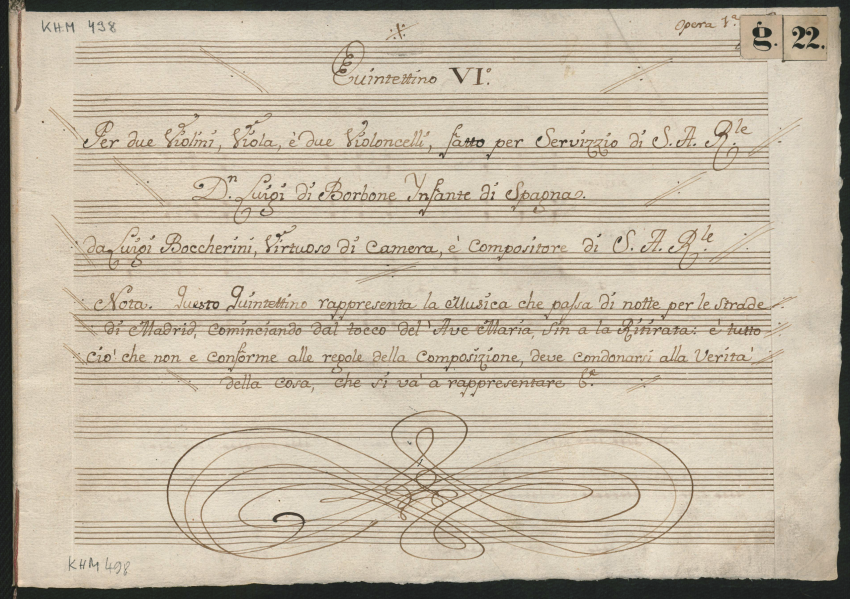 KHM 498
Opera 1ª
g. 22.
Quintettino VI.º
Per due Violini, Viola, è due Violoncelli, fatto per Servizzio di S. A. R.le
D.n Luigi di Borbone Ynfante di Spagna.
da Luigi Boccherini, Virtuoso di Camera, è Compositore di S. A. R.le
Nota. Questo Quintettino rappresenta la Musica che passa di notte per le strade
di Madrid, cominciando dal tocco del' Ave Maria sin a la Ritirata: è tutto
ciò che non e conforme alle regole della Composizione, deve condonarsi alla Verità
della cosa, che si và a rappresentare
KHM 498